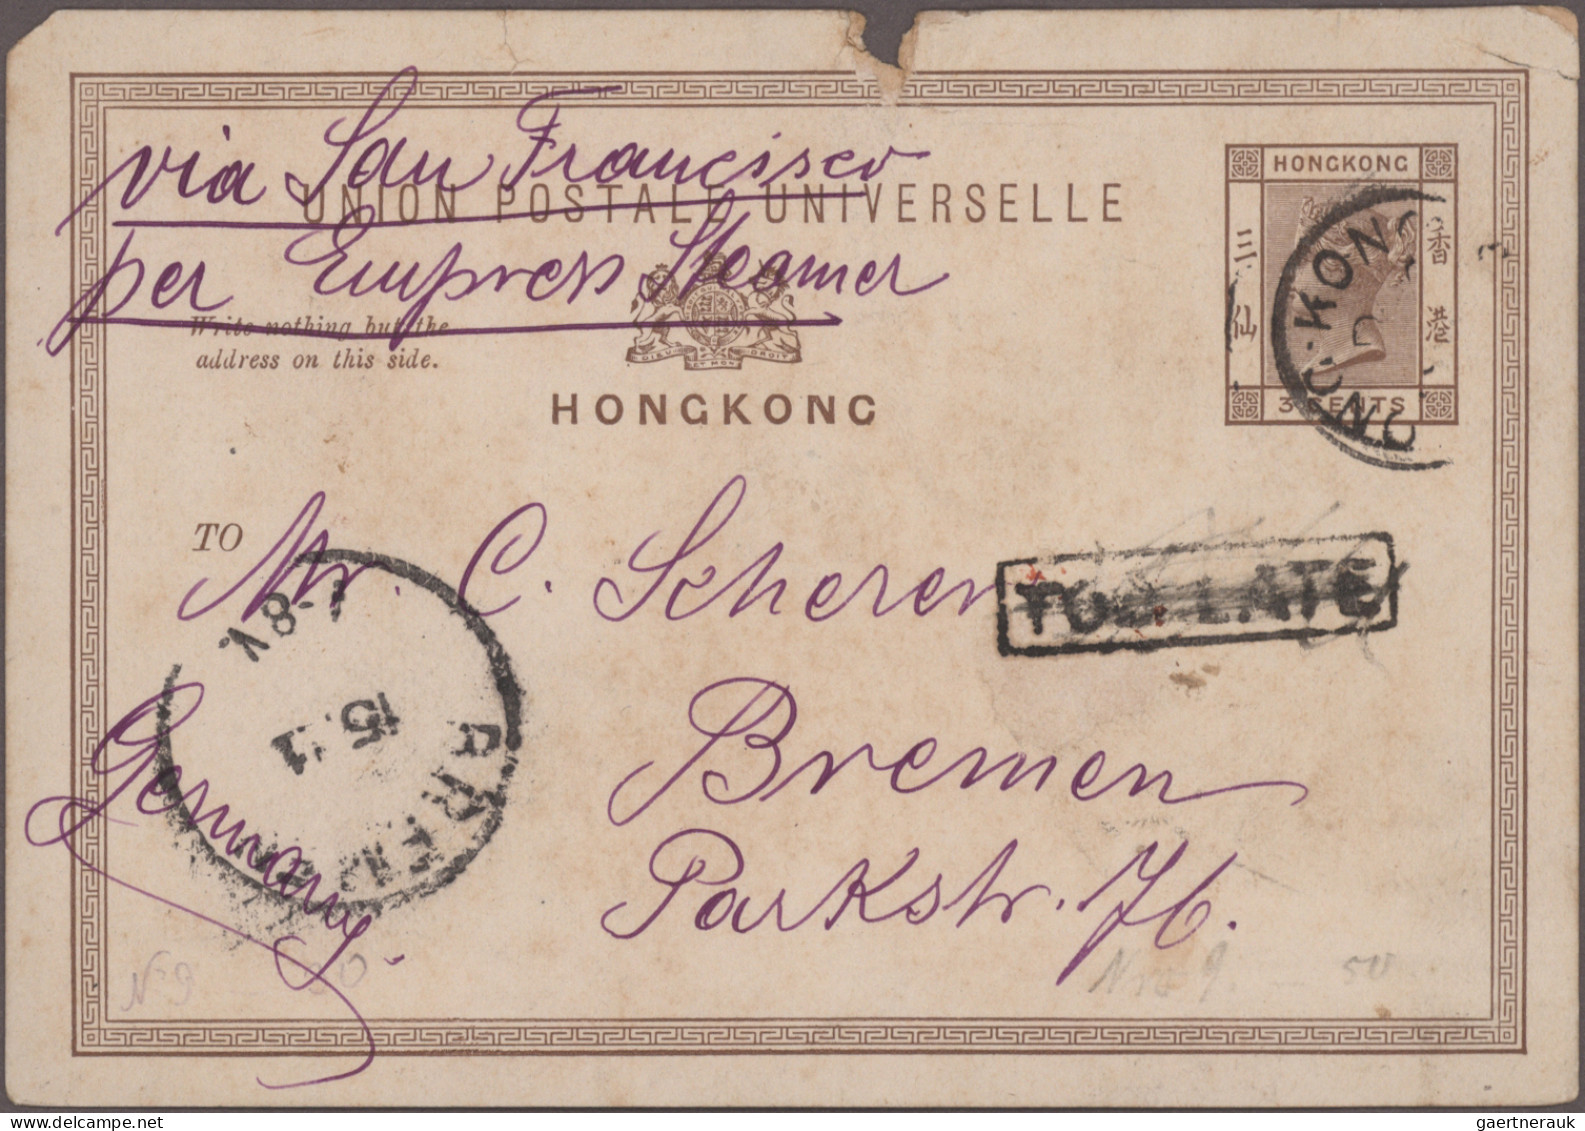 via San Francisco
UNION POSTALE UNIVERSELLE
per Empress Steamer
Write nothing but the
address on this side.
DIEU ET MON DROIT
HONGKONG
HONGKONG
香港
三仙
3 CENTS
TO
Mr. C. Scheren
TOO LATE
Bremen
Parkstr. 76.
Germany.
7-8V.
15.11
BREMEN
No 9
50
gaertnerauk